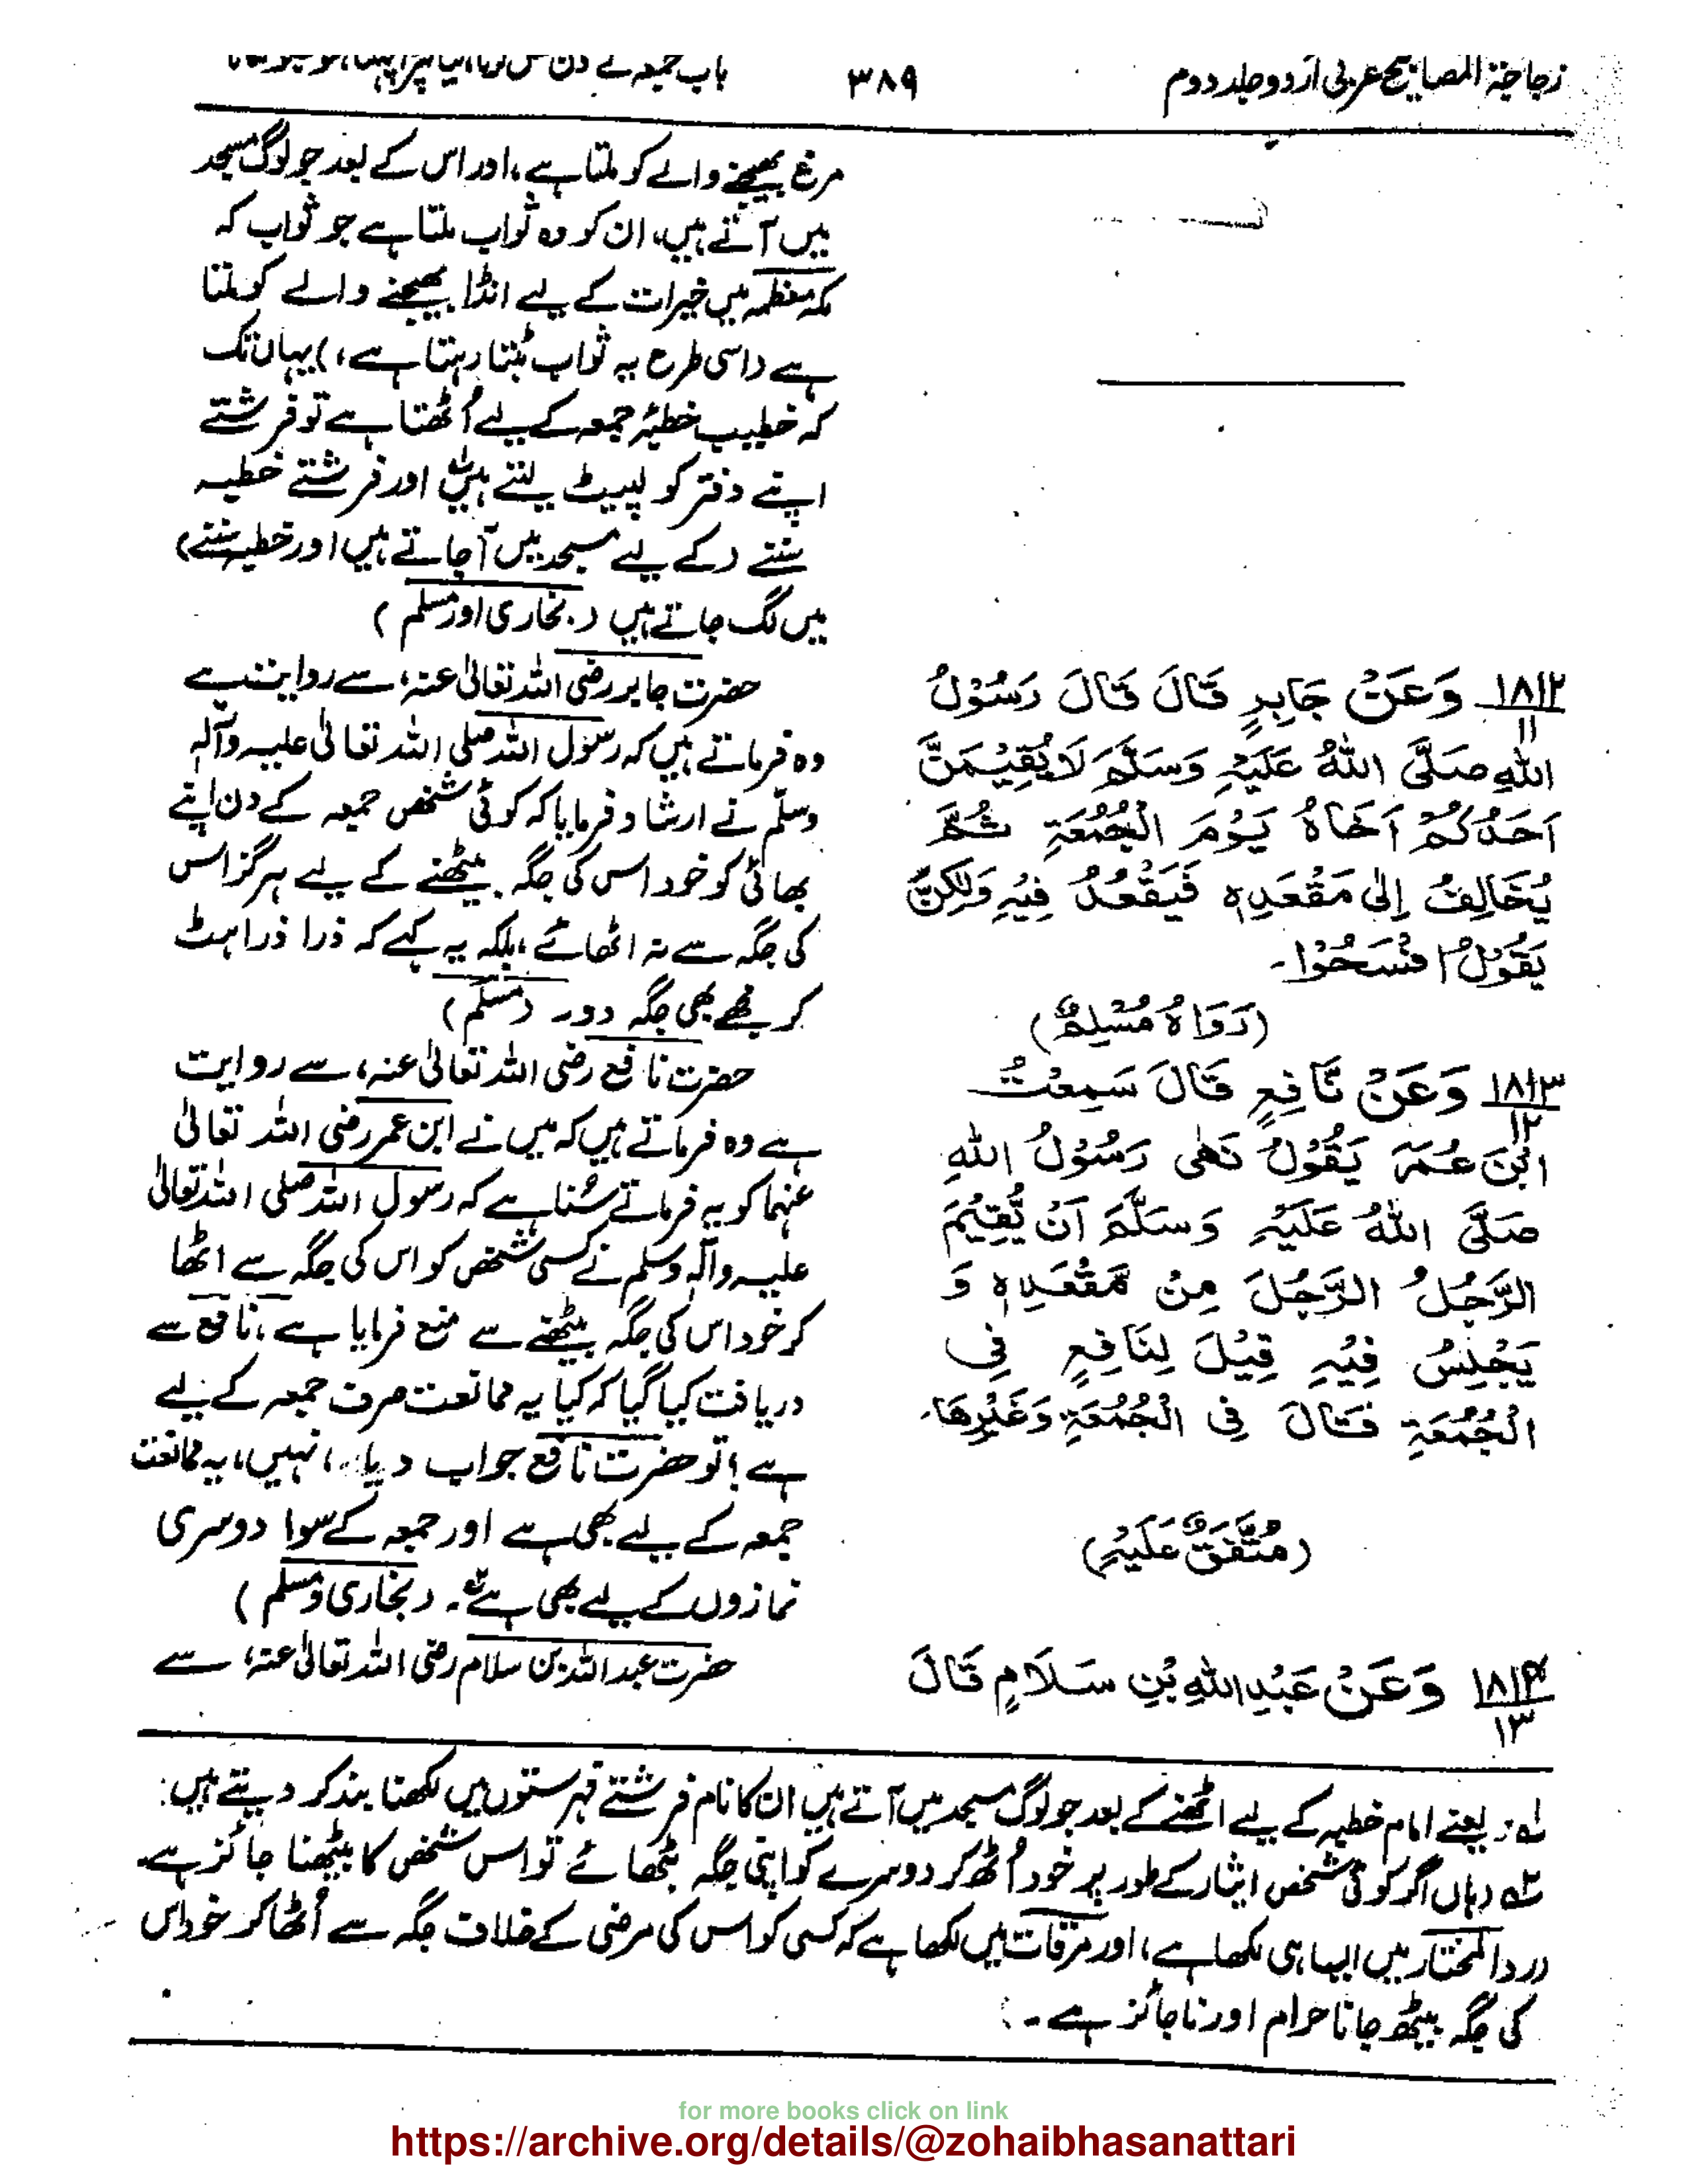 زجاجۃ المصابیح عربی اردو جلد دوم
۳۸۹
باب جمعہ کے دن
مرغ بھیجنے والے کو ملتا ہے، اور اس کے بعد جو لوگ مسجد
میں آتے ہیں، ان کو وہ ثواب ملتا ہے جو ثواب کہ
مکہ معظمہ میں خیرات کے لیے انڈا بھیجنے والے کو ملتا
ہے (اسی طرح یہ ثواب بٹتا رہتا ہے،) یہاں تک
کہ خطیب خطبۂ جمعہ کے لیے اُٹھتا ہے تو فرشتے
اپنے دفتر کو لپیٹ لیتے ہیں لہ اور فرشتے خطبہ
سننے (کے لیے مسجد میں آ جاتے ہیں اور خطبہ سننے)
میں لگ جاتے ہیں (بخاری اور مسلم)
۱۸۱۲/۱۱ وَعَنْ جَابِرٍ قَالَ قَالَ رَسُوْلُ
اللّٰهِ صَلَّى اللّٰهُ عَلَيْهِ وَسَلَّمَ لَا يُقِيْمَنَّ
اَحَدُكُمْ اَخَاهُ يَوْمَ الْجُمُعَةِ ثُمَّ
يُخَالِفُ اِلٰى مَقْعَدِهٖ فَيَقْعُدُ فِيْهِ وَلٰكِنْ
يَقُوْلُ افْسَحُوْا۔
(رَوَاهُ مُسْلِمٌ)
حضرت جابر رضی اللہ تعالیٰ عنہ، سے روایت ہے
وہ فرماتے ہیں کہ رسول اللہ صلی اللہ تعالیٰ علیہ وآلہ
وسلم نے ارشاد فرمایا کہ کوئی شخص جمعہ کے دن اپنے
بھائی کو خود اس کی جگہ بیٹھنے کے لیے ہرگز اس
کی جگہ سے نہ اٹھائے، بلکہ یہ کہے کہ ذرا ذرا ہٹ
کر مجھے بھی جگہ دو۔ (مسلم)
۱۸۱۳/۱۲ وَعَنْ نَافِعٍ قَالَ سَمِعْتُ
ابْنَ عُمَرَ يَقُوْلُ نَهٰى رَسُوْلُ اللّٰهِ
صَلَّى اللّٰهُ عَلَيْهِ وَسَلَّمَ اَنْ يُّقِيْمَ
الرَّجُلُ الرَّجُلَ مِنْ مَّقْعَدِهٖ وَ
يَجْلِسُ فِيْهِ قِيْلَ لِنَافِعٍ فِي
الْجُمُعَةِ قَالَ فِي الْجُمُعَةِ وَغَيْرِهَا۔
(مُتَّفَقٌ عَلَيْهِ)
حضرت نافع رضی اللہ تعالیٰ عنہ، سے روایت
ہے وہ فرماتے ہیں کہ میں نے ابن عمر رضی اللہ تعالیٰ
عنہما کو یہ فرماتے سُنا ہے کہ رسول اللہ صلی اللہ تعالیٰ
علیہ وآلہ وسلم نے کسی شخص کو اس کی جگہ سے اٹھا
کر خود اس کی جگہ بیٹھنے سے منع فرمایا ہے، نافع سے
دریافت کیا گیا کہ کیا یہ ممانعت صرف جمعہ کے لیے
ہے؟ تو حضرت نافع جواب دیا، نہیں، یہ ممانعت
جمعہ کے لیے بھی ہے اور جمعہ کے سوا دوسری
نمازوں کے لیے بھی ہے ۲ہ۔ (بخاری ومسلم)
۱۸۱۴/۱۳ وَعَنْ عَبْدِ اللّٰهِ بْنِ سَلَامٍ قَالَ
حضرت عبداللہ بن سلام رضی اللہ تعالیٰ عنہ، سے
لہ یعنے امام خطبہ کے لیے اٹھنے کے بعد جو لوگ مسجد میں آتے ہیں ان کا نام فرشتے فہرستوں میں لکھنا بند کر دیتے ہیں:
۲ہ (ہاں اگر کوئی شخص ایثار کے طور پر خود اُٹھ کر دوسرے کو اپنی جگہ بٹھائے تو اس شخص کا بیٹھنا جائز ہے۔
(ردالمحتار میں ایسا ہی لکھا ہے، اور مرقات میں لکھا ہے کہ کسی کو اس کی مرضی کے خلاف جگہ سے اُٹھا کر خود اس
کی جگہ بیٹھ جانا حرام اور ناجائز ہے۔)
for more books click on link
https://archive.org/details/@zohaibhasanattari